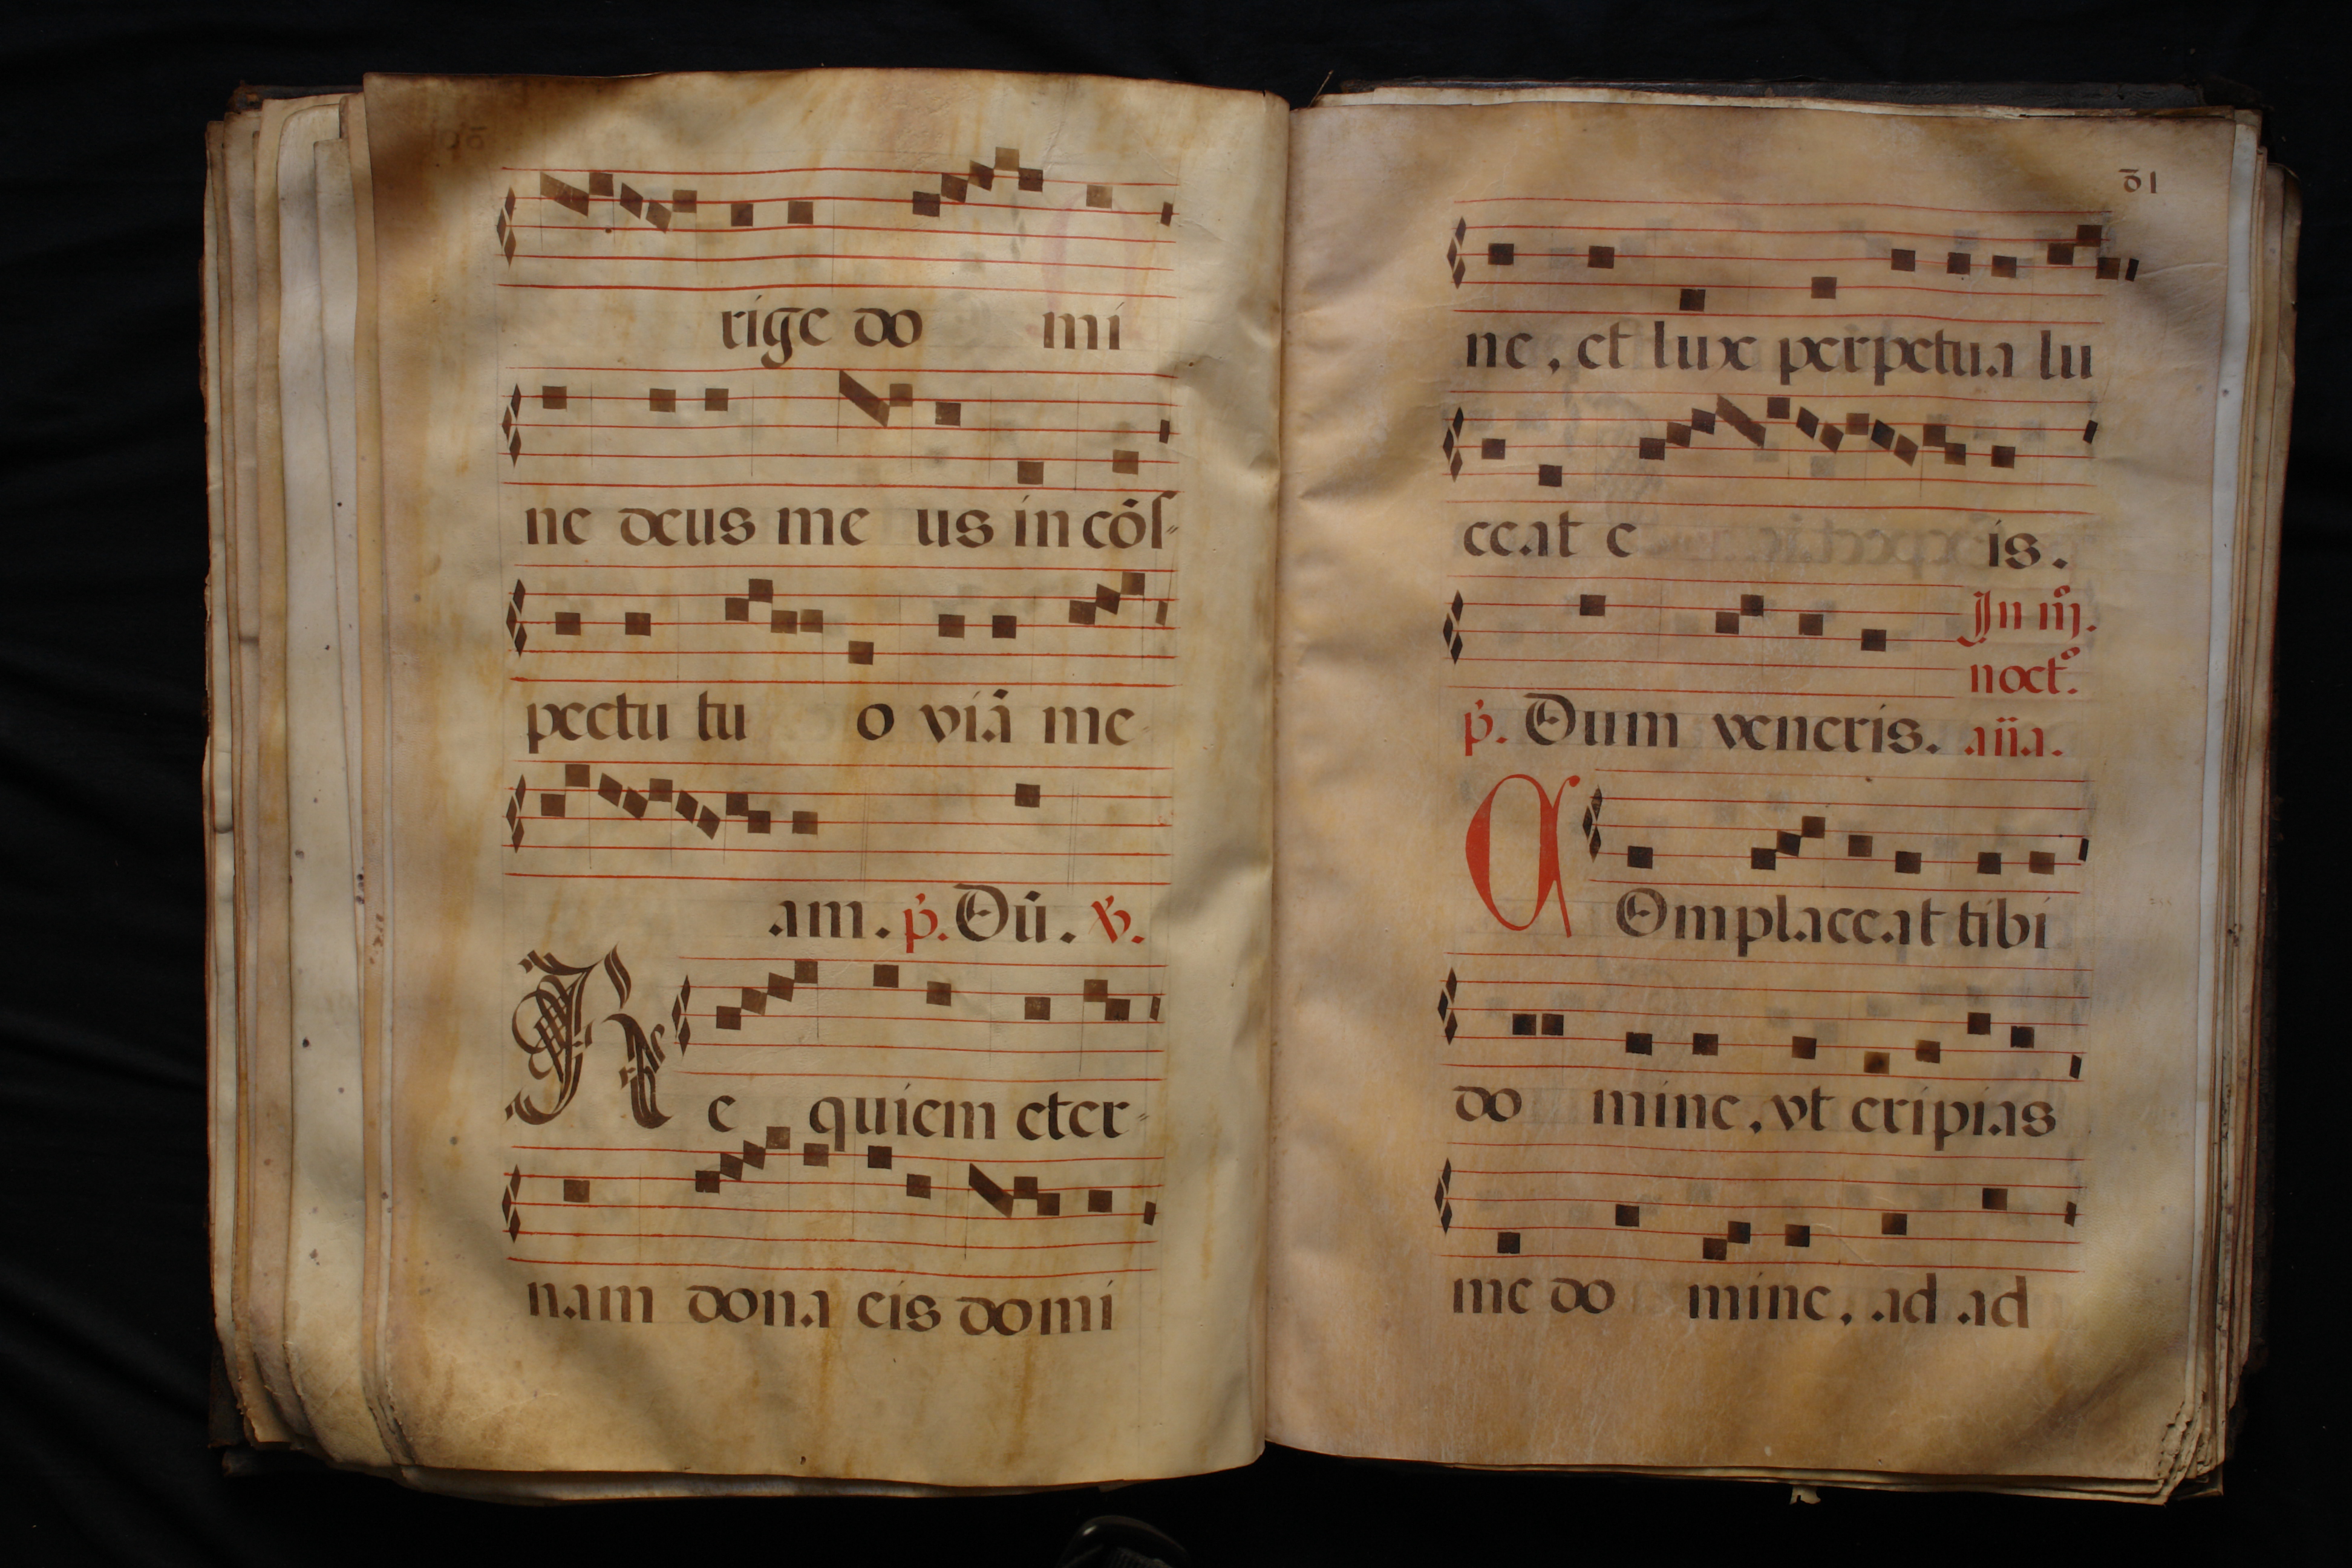 rige do mi
ne deus me us in cōs-
pectu tu o viā me
am. p̄. Dū. v̄.
Re quiem eter-
nam dona eis domi
ō1
ne, et lux perpetua lu
ceat e is.
In iij.
noct.
p̄. Dum veneris. aña.
Complaceat tibi
do mine, vt eripias
me do mine, ad ad